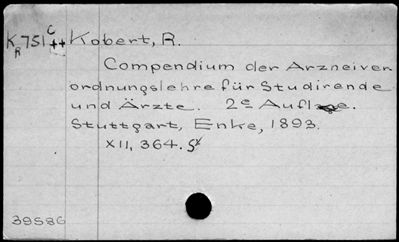 K 751 C ++ Kobert, R.
R
Compendium der Arzneiver
ordnungslehre für Studirende
und Ärzte. 2e Auflage.
Stuttgart, Enke, 1893.
XII, 364.
39586